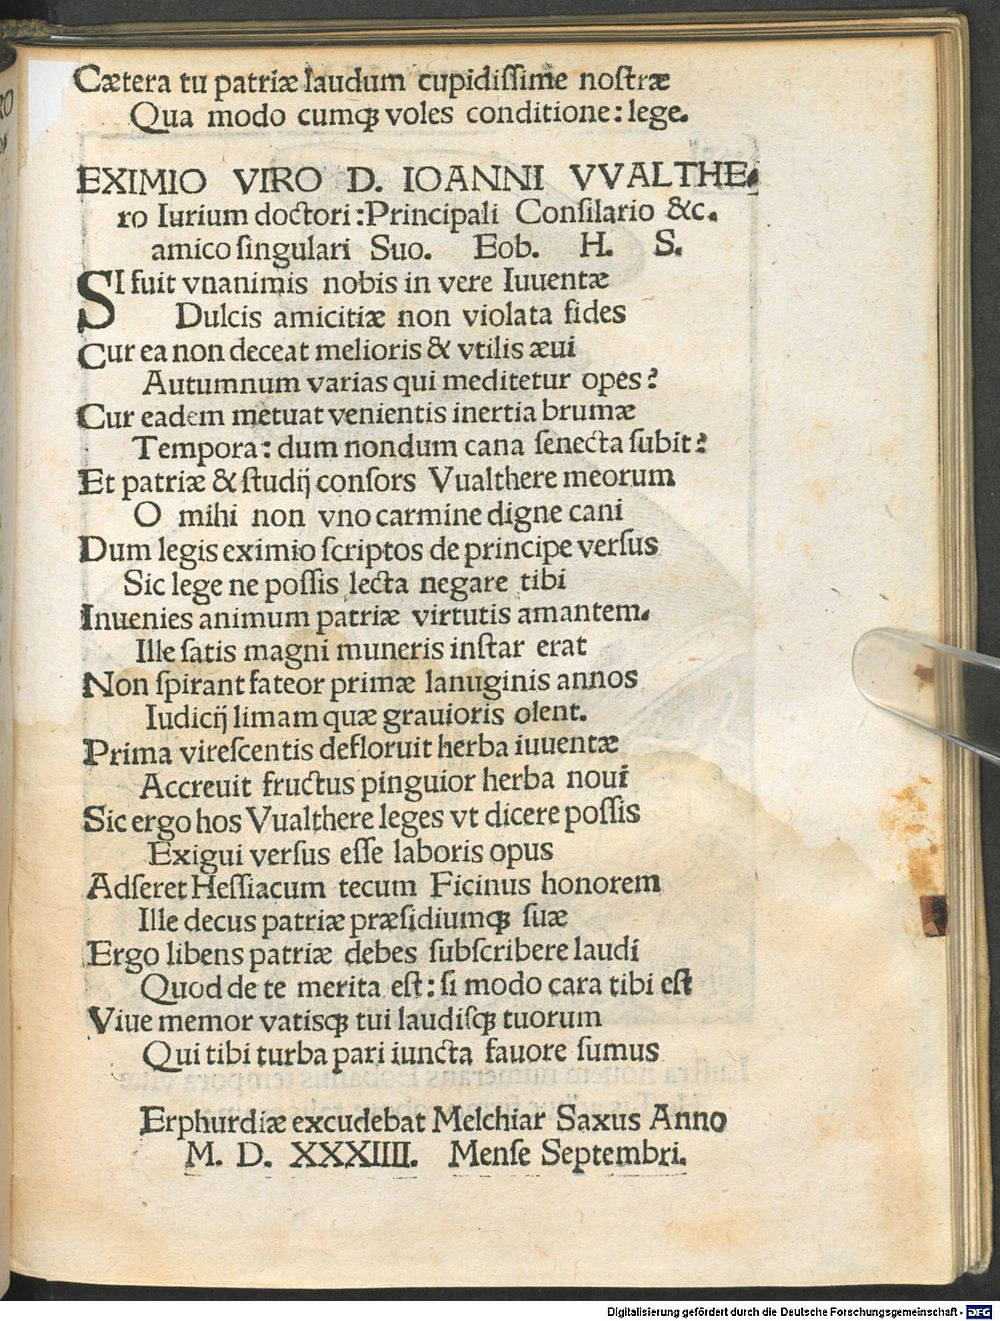 Cætera tu patriæ laudum cupidiſſime noſtræ
Qua modo cumqꝫ voles conditione: lege.
EXIMIO VIRO D. IOANNI VVALTHE⸗
ro Iurium doctori: Principali Conſilario &c.
amico ſingulari Suo. Eob. H. S.
SI fuit vnanimis nobis in vere Iuuentæ
Dulcis amicitiæ non violata fides
Cur ea non deceat melioris & vtilis æui
Autumnum varias qui meditetur opes?
Cur eadem metuat venientis inertia brumæ
Tempora: dum nondum cana ſenecta ſubit?
Et patriæ & ſtudij conſors Vualthere meorum
O mihi non vno carmine digne cani
Dum legis eximio ſcriptos de principe verſus
Sic lege ne poſſis lecta negare tibi
Inuenies animum patriæ virtutis amantem.
Ille ſatis magni muneris inſtar erat
Non ſpirant fateor primæ lanuginis annos
Iudicij limam quæ grauioris olent.
Prima vireſcentis defloruit herba iuuentæ
Accreuit fructus pinguior herba noui
Sic ergo hos Vualthere leges vt dicere poſſis
Exigui verſus eſſe laboris opus
Adſeret Heſſiacum tecum Ficinus honorem
Ille decus patriæ præſidiumqꝫ ſuæ
Ergo libens patriæ debes ſubſcribere laudi
Quod de te merita eſt: ſi modo cara tibi eſt
Viue memor vatisqꝫ tui laudiſqꝫ tuorum
Qui tibi turba pari iuncta fauore ſumus
Erphurdiæ excudebat Melchiar Saxus Anno
M. D. XXXIIII. Menſe Septembri.
Digitalisierung gefördert durch die Deutsche Forschungsgemeinschaft - DFG